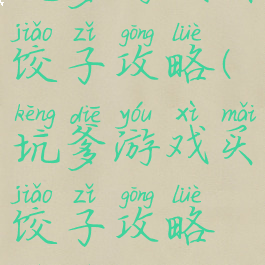 jiǎo zǐ gōng lüè
饺子攻略(
kēng diē yóu xì mǎi
坑爹游戏买
jiǎo zǐ gōng lüè
饺子攻略